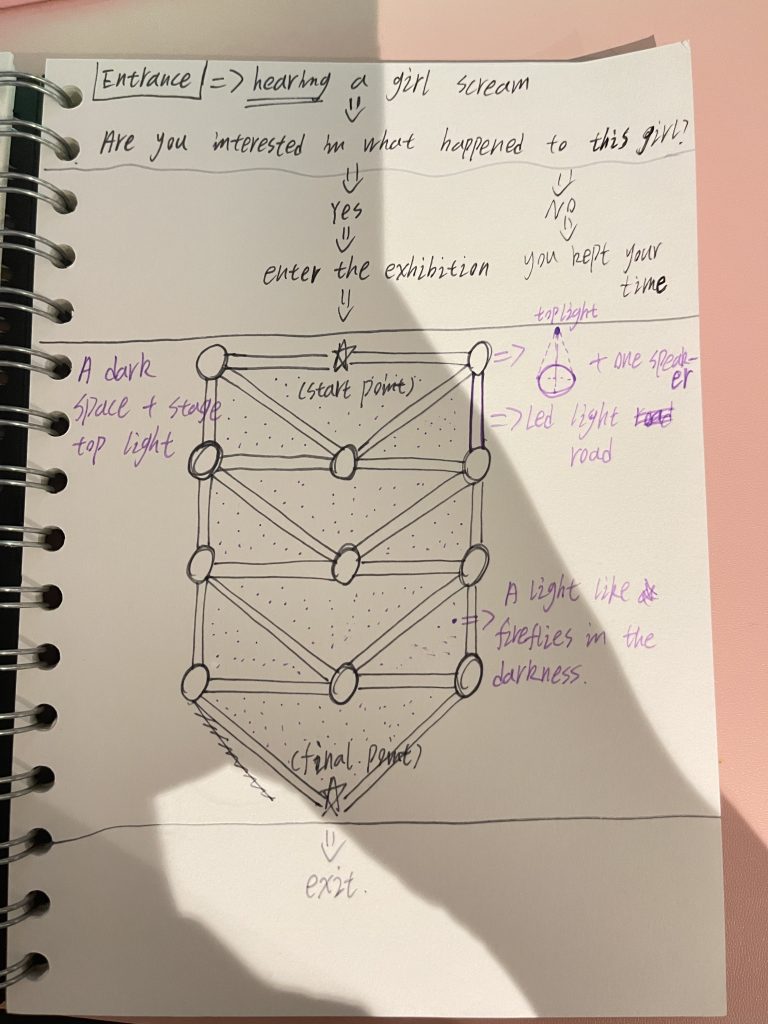 Entrance => hearing a girl scream
Are you interested in what happened to this girl?
Yes
NO
enter the exhibition
you kept your time
top light
+ one speaker
(start point)
A dark
space + stage
top light
=> Led light
road
A light like
=> fireflies in the
darkness.
(final point)
exit.